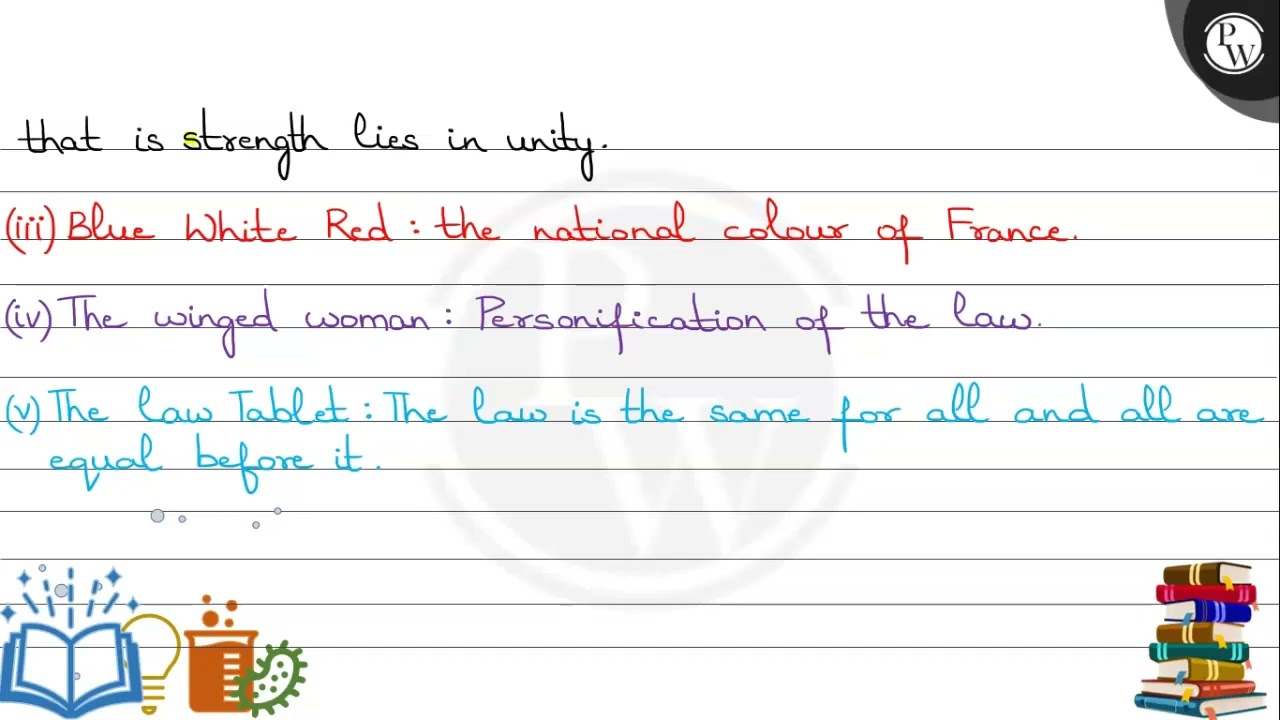 PW
that is strength lies in unity.
(iii) Blue White Red : the national colour of France.
(iv) The winged woman : Personification of the law.
(v) The law Tablet : The law is the same for all and all are
equal before it.
PW